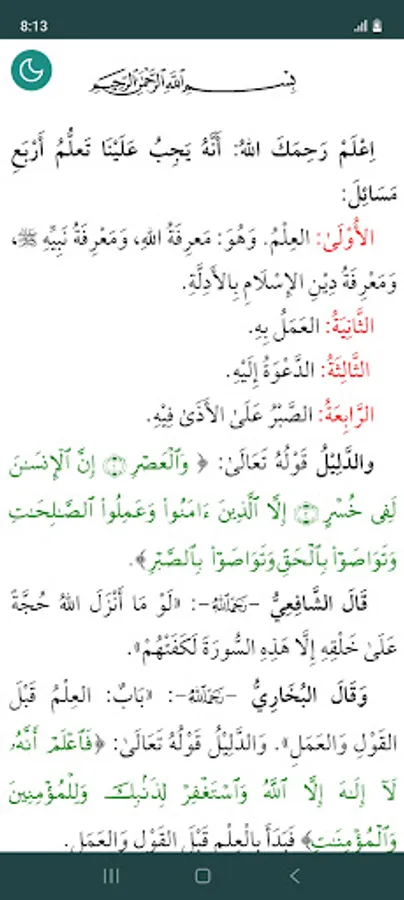 8:13
بِسْمِ اللَّهِ الرَّحْمَٰنِ الرَّحِيمِ
اِعْلَمْ رَحِمَكَ اللهُ: أَنَّهُ يَجِبُ عَلَيْنَا تَعلُّمُ أَرْبَعِ
مَسَائِلَ:
الأُوْلَىٰ: العِلْمُ. وَهُوَ: مَعرِفَةُ اللهِ، وَمَعْرِفَةُ نَبِيِّهِ ﷺ،
وَمَعْرِفَةُ دِيْنِ الإِسْلَامِ بِالأَدِلَّةِ.
الثَّانِيَةُ: العَمَلُ بِهِ.
الثَّالِثَةُ: الدَّعْوَةُ إِلَيْهِ.
الرَّابِعَةُ: الصَّبْرُ عَلَىٰ الأَذَىٰ فِيْهِ.
والدَّلِيْلُ قَوْلُهُ تَعَالَىٰ: ﴿ وَٱلْعَصْرِ ۝١ إِنَّ ٱلْإِنسَـٰنَ
لَفِى خُسْرٍ ۝٢ إِلَّا ٱلَّذِينَ ءَامَنُوا۟ وَعَمِلُوا۟ ٱلصَّـٰلِحَـٰتِ
وَتَوَاصَوْا۟ بِٱلْحَقِّ وَتَوَاصَوْا۟ بِٱلصَّبْرِ﴾.
قَالَ الشَّافِعِيُّ -رَحِمَهُ ٱللَّهُ-: «لَوْ مَا أَنْزَلَ اللهُ حُجَّةً
عَلَىٰ خَلْقِهِ إِلَّا هَذِهِ السُّورَةَ لَكَفَتْهُمْ».
وَقَالَ البُخَارِيُّ -رَحِمَهُ ٱللَّهُ-: «بَابٌ: العِلْمُ قَبْلَ
القَوْلِ وَالعَمَلِ». وَالدَّلِيْلُ قَوْلُهُ تَعَالَىٰ: ﴿فَٱعْلَمْ أَنَّهُۥ
لَآ إِلَـٰهَ إِلَّا ٱللَّهُ وَٱسْتَغْفِرْ لِذَنۢبِكَ وَلِلْمُؤْمِنِينَ
وَٱلْمُؤْمِنَـٰتِ﴾ فَبَدَأَ بِالْعِلْمِ قَبْلَ القَوْلِ وَالعَمَلِ.